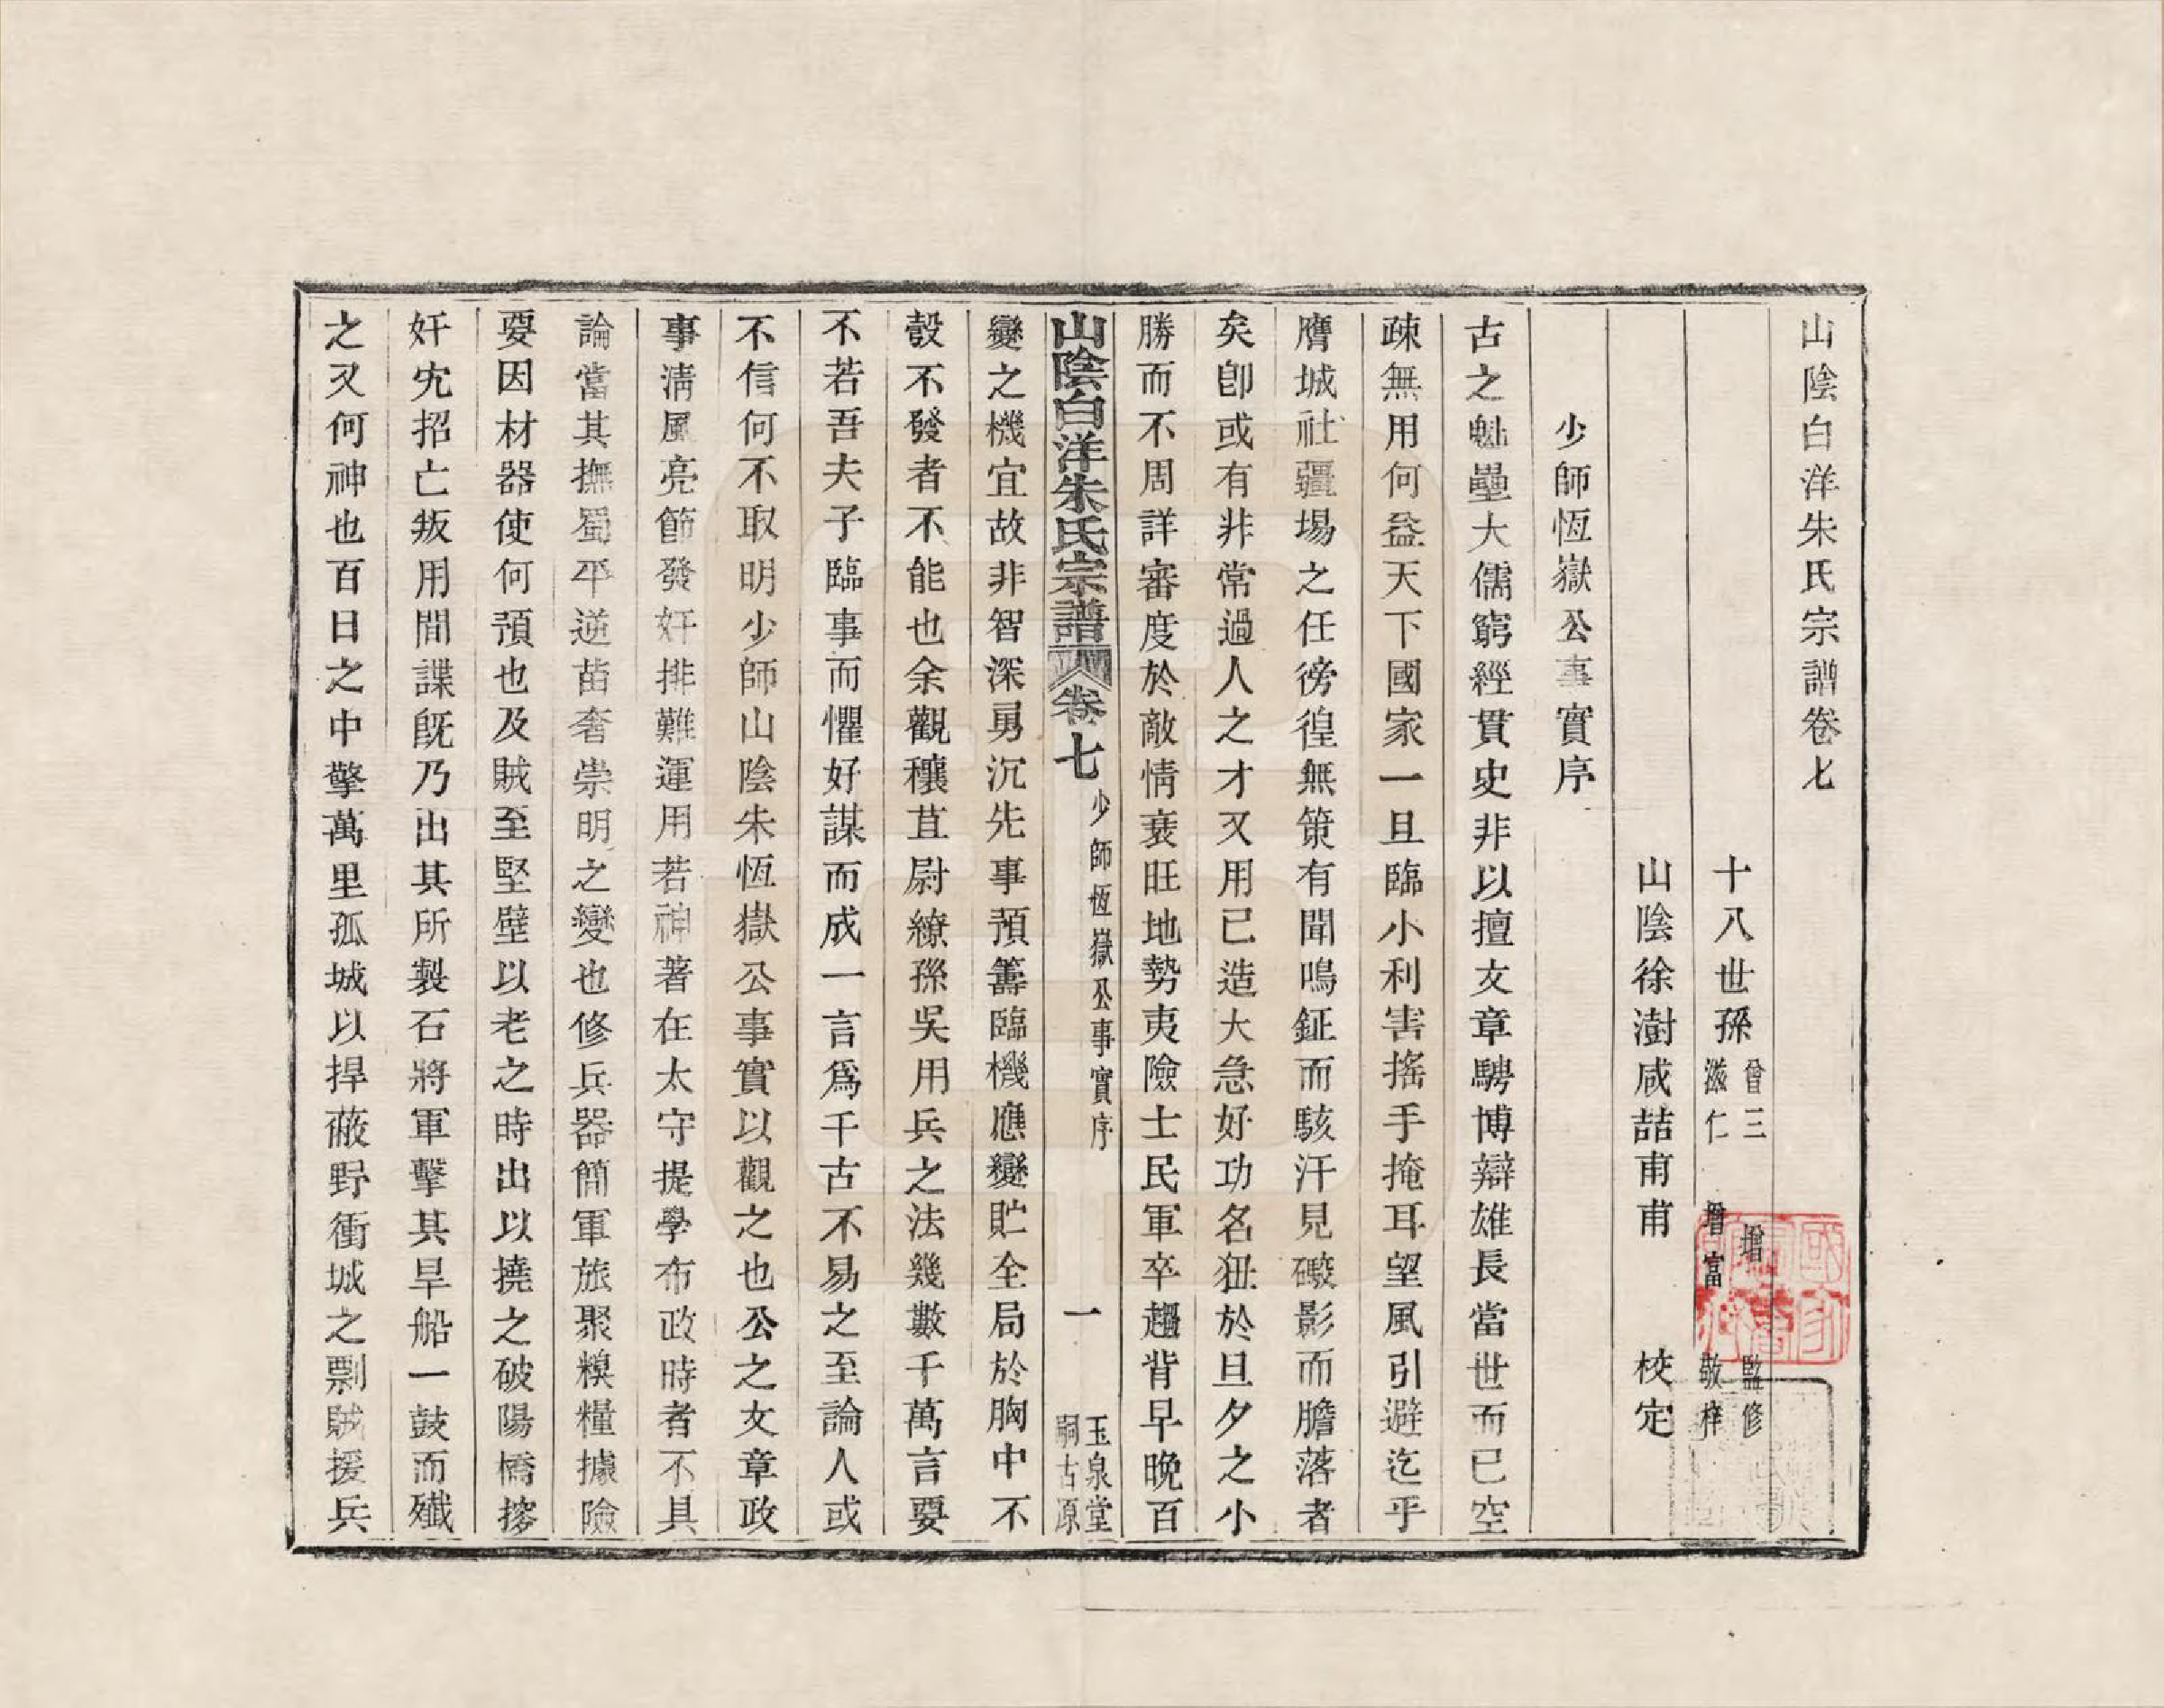 山陰白洋朱氏宗譜卷七
十八世孫曾三增監修
滋仁增富敬梓
山陰徐澍咸喆甫甫校定
少師恆嶽公事實序
古之魁壘大儒窮經貫史非以擅文章騁博辯雄長當世而已空
疎無用何益天下國家一旦臨小利害搖手掩耳望風引避迄乎
膺城社疆場之任徬徨無策有聞鳴鉦而駭汗見礮影而膽落者
矣卽或有非常過人之才又用已造大急好功名狃於旦夕之小
勝而不周詳審度於敵情衰旺地勢夷險士民軍卒趨背早晚百
山陰白洋朱氏宗譜卷七少師恆嶽公事實序一玉泉堂嗣古原
變之機宜故非智深勇沉先事預籌臨機應變貯全局於胸中不
彀不發者不能也余觀穰苴尉繚孫吳用兵之法幾數千萬言要
不若吾夫子臨事而懼好謀而成一言爲千古不易之至論人或
不信何不取明少師山陰朱恆嶽公事實以觀之也公之文章政
事淸風亮節發奸排難運用若神著在太守提學布政時者不具
論當其撫蜀平逆苗奢崇明之變也修兵器簡軍旅聚糗糧據險
要因材器使何預也及賊至堅壁以老之時出以撓之破陽橋撈
奸宄招亡叛用間諜旣乃出其所製石將軍擊其旱船一鼓而殲
之又何神也百日之中擎萬里孤城以捍蔽野衝城之剽賊援兵